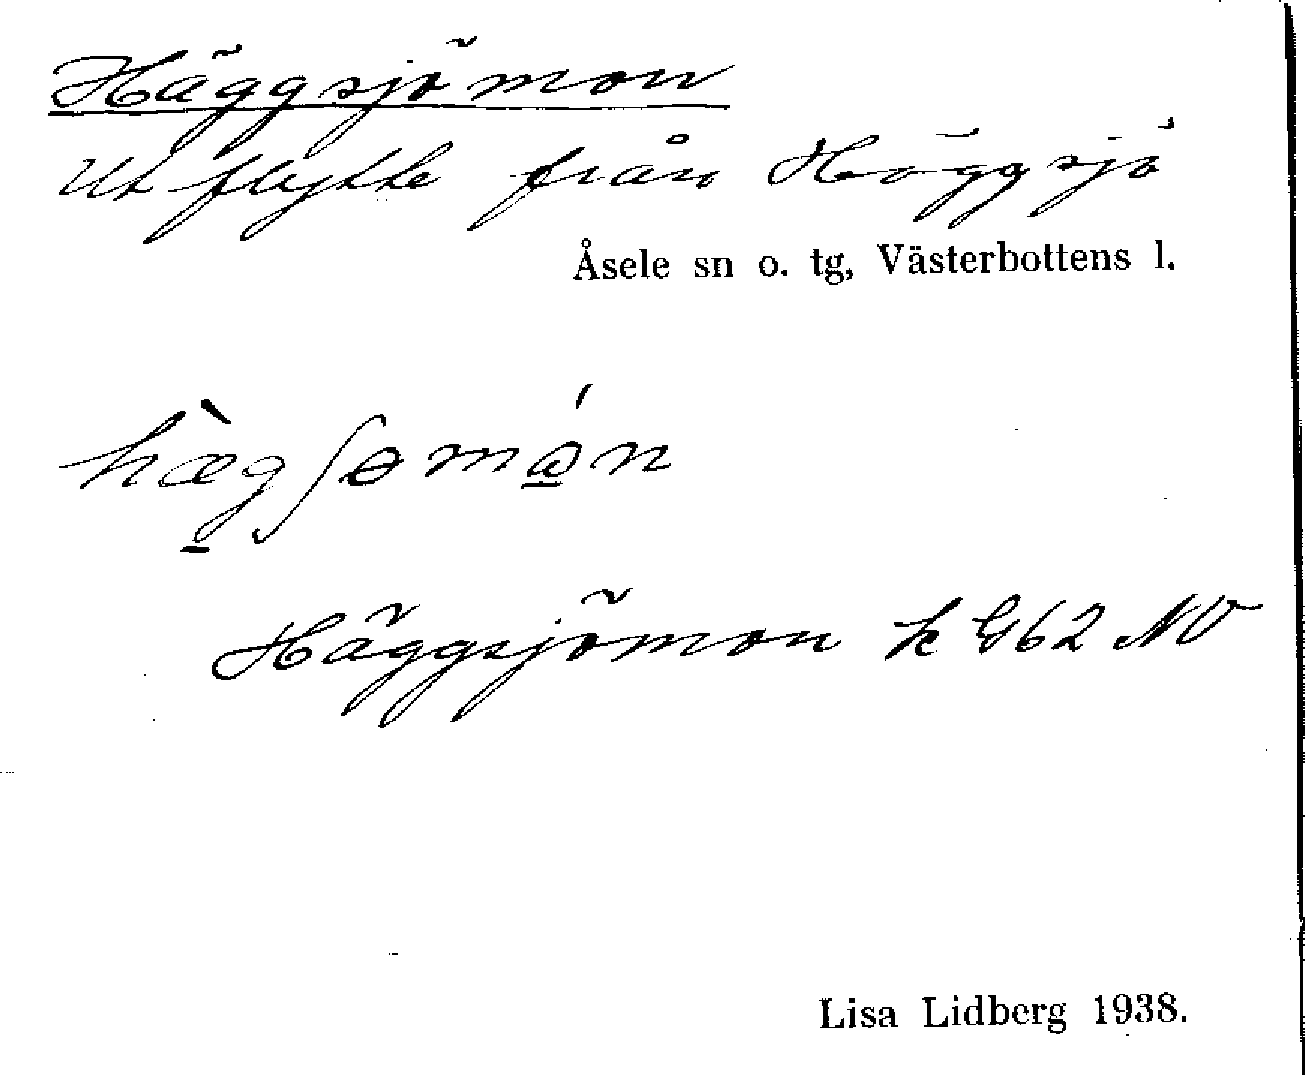 Häggsjömon
Utflytte från Häggsjö
Åsele sn o. tg, Västerbottens l.
hæ̀gʃɵmɷ́n
Häggsjömon k G62 NV
Lisa Lidberg 1938.